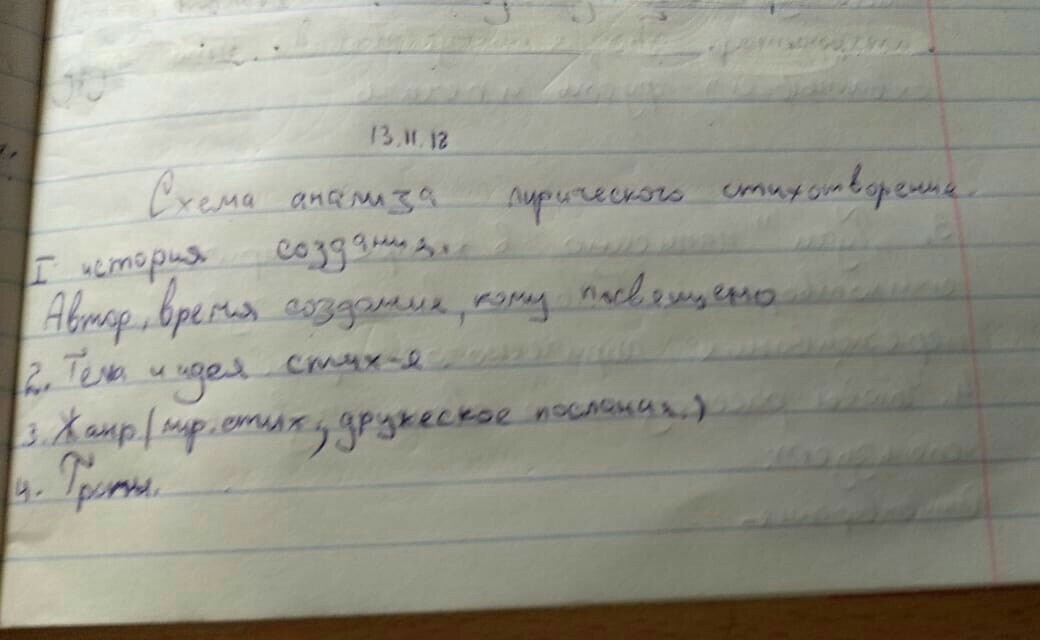 13.11.18
Схема анализа лирического стихотворения.
I история создания.
Автор, время создания, кому посвящено
2. Тема и идея стих-я
3. Жанр (лир. стих, дружеское послание.)
4. Тропы.